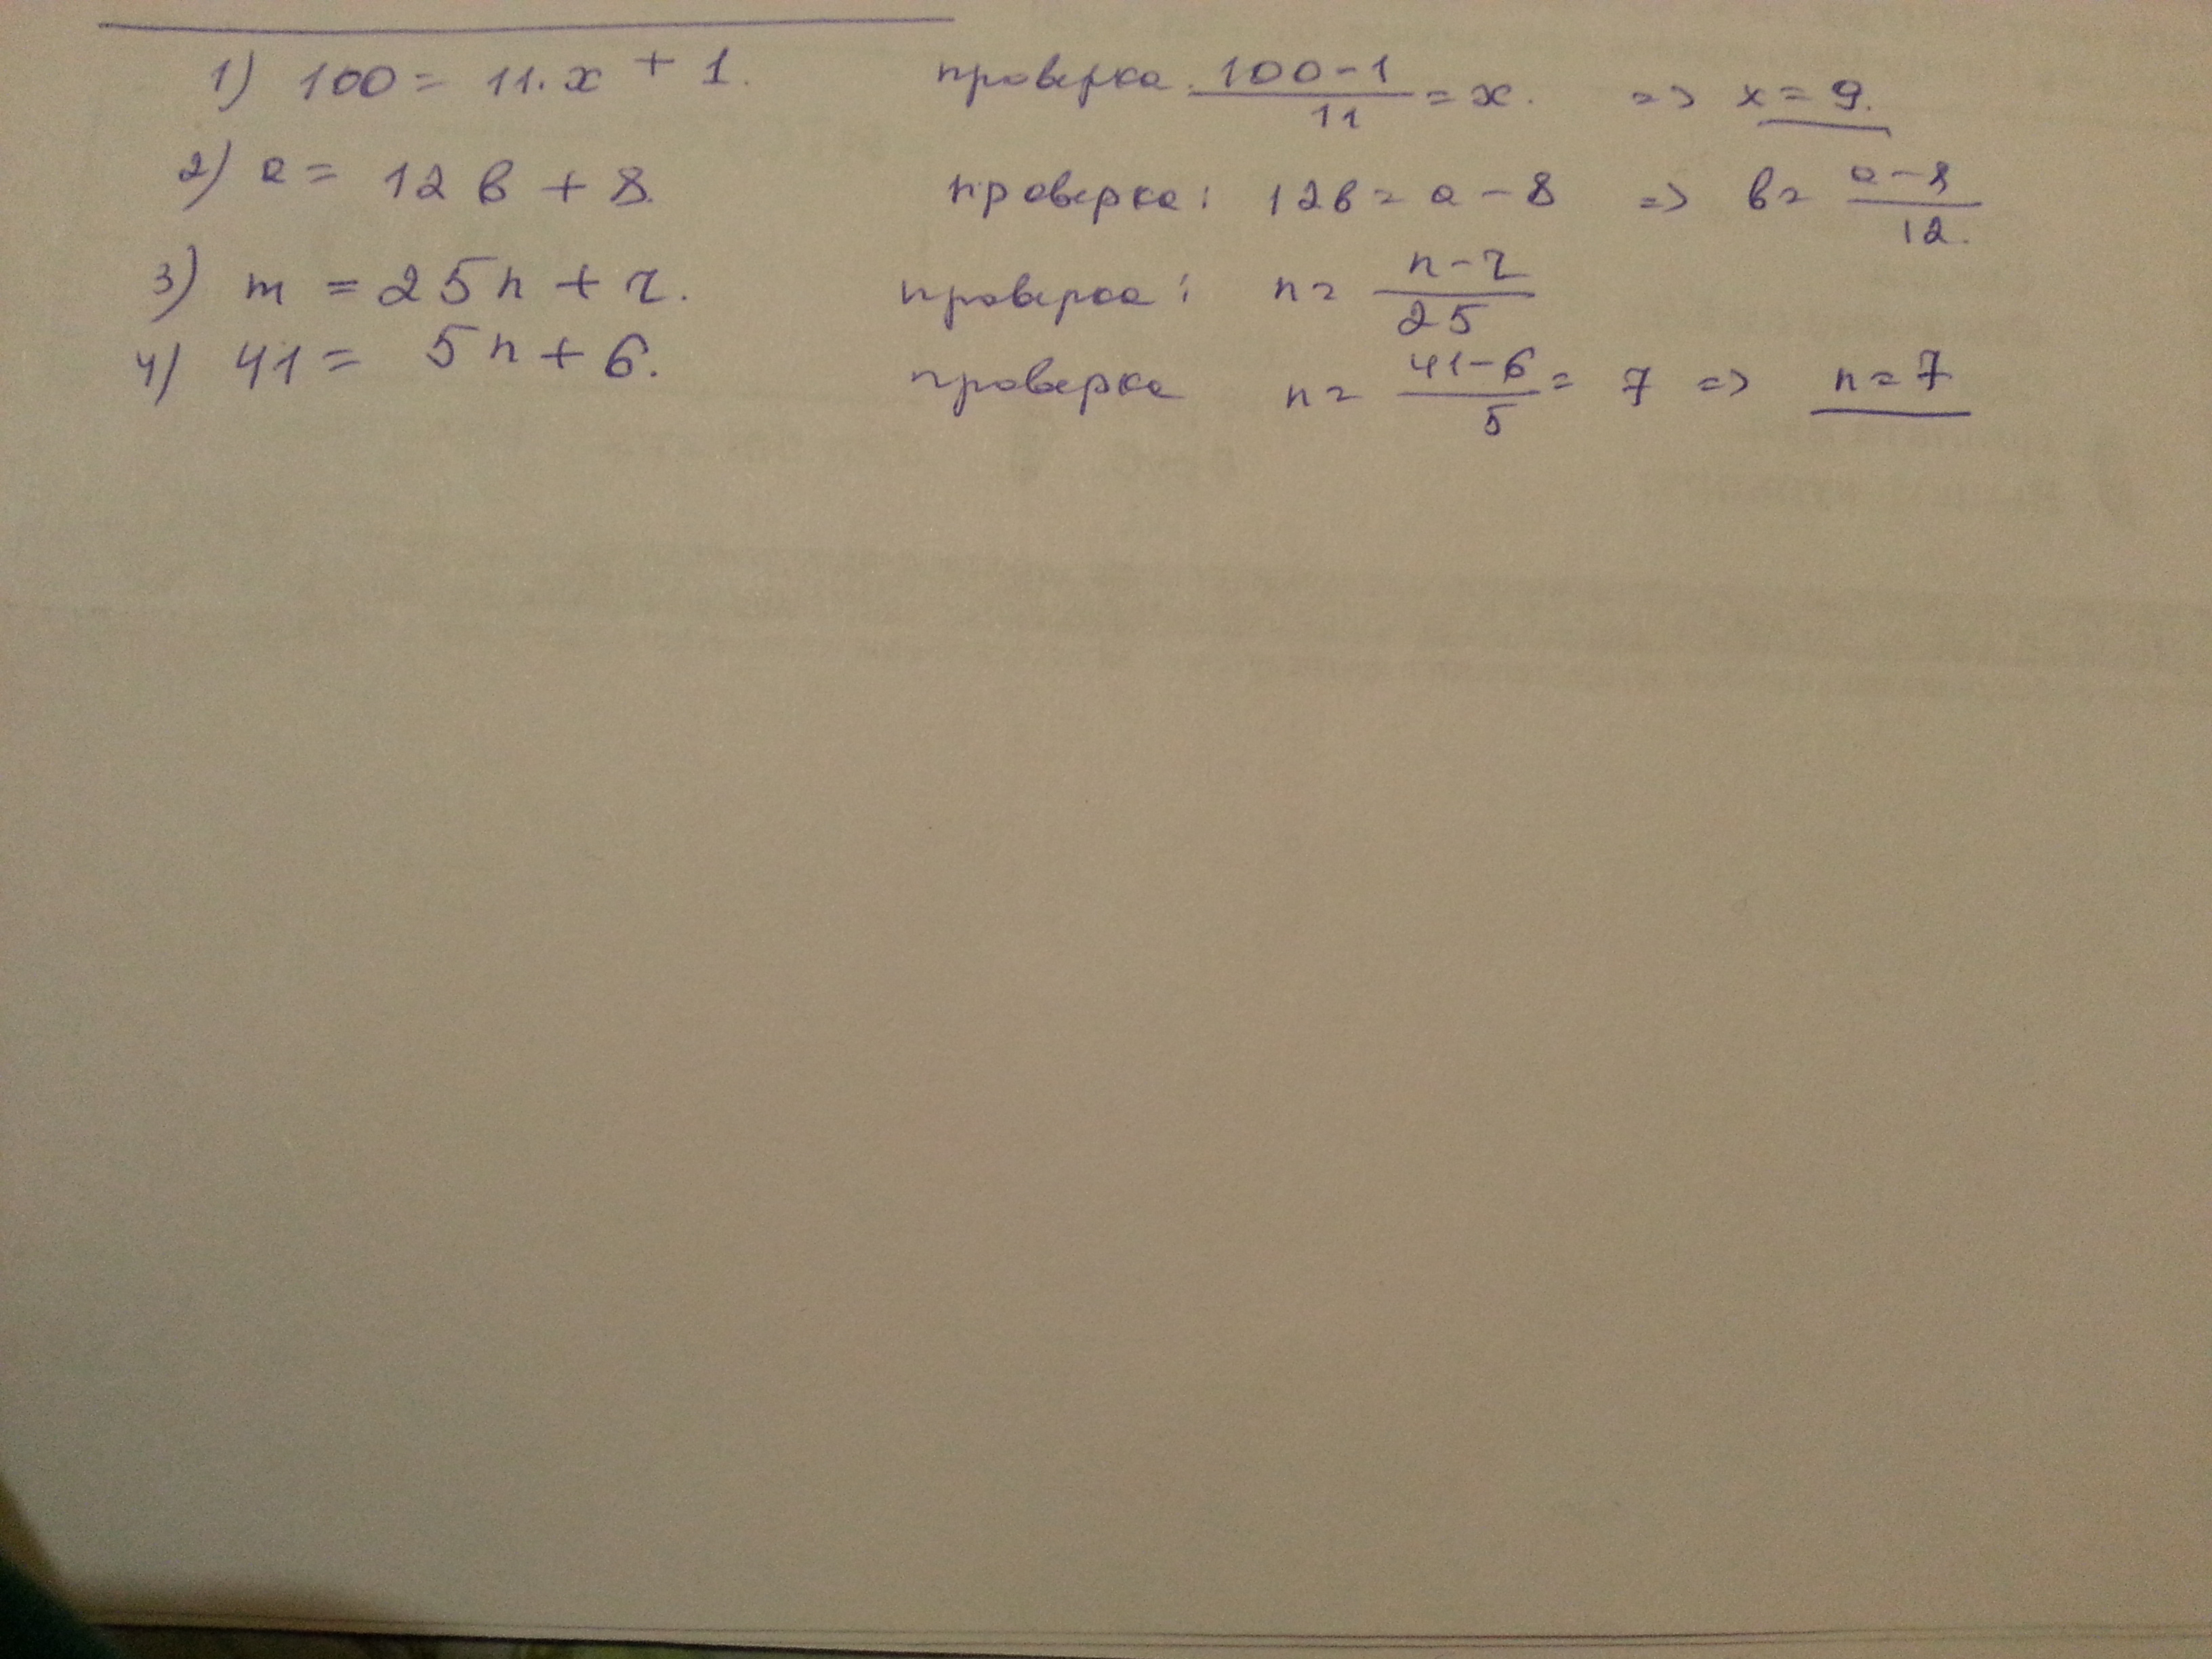 1) 100 = 11·x + 1. проверка. (100-1)/11 = x. => x = 9.
2) a = 12 в + 8. проверка: 12в = a - 8 => в = (a-8)/12.
3) m = 25n + r. проверка: n = (n-r)/25
4) 41 = 5n + 6. проверка n = (41-6)/5 = 7 => n = 7